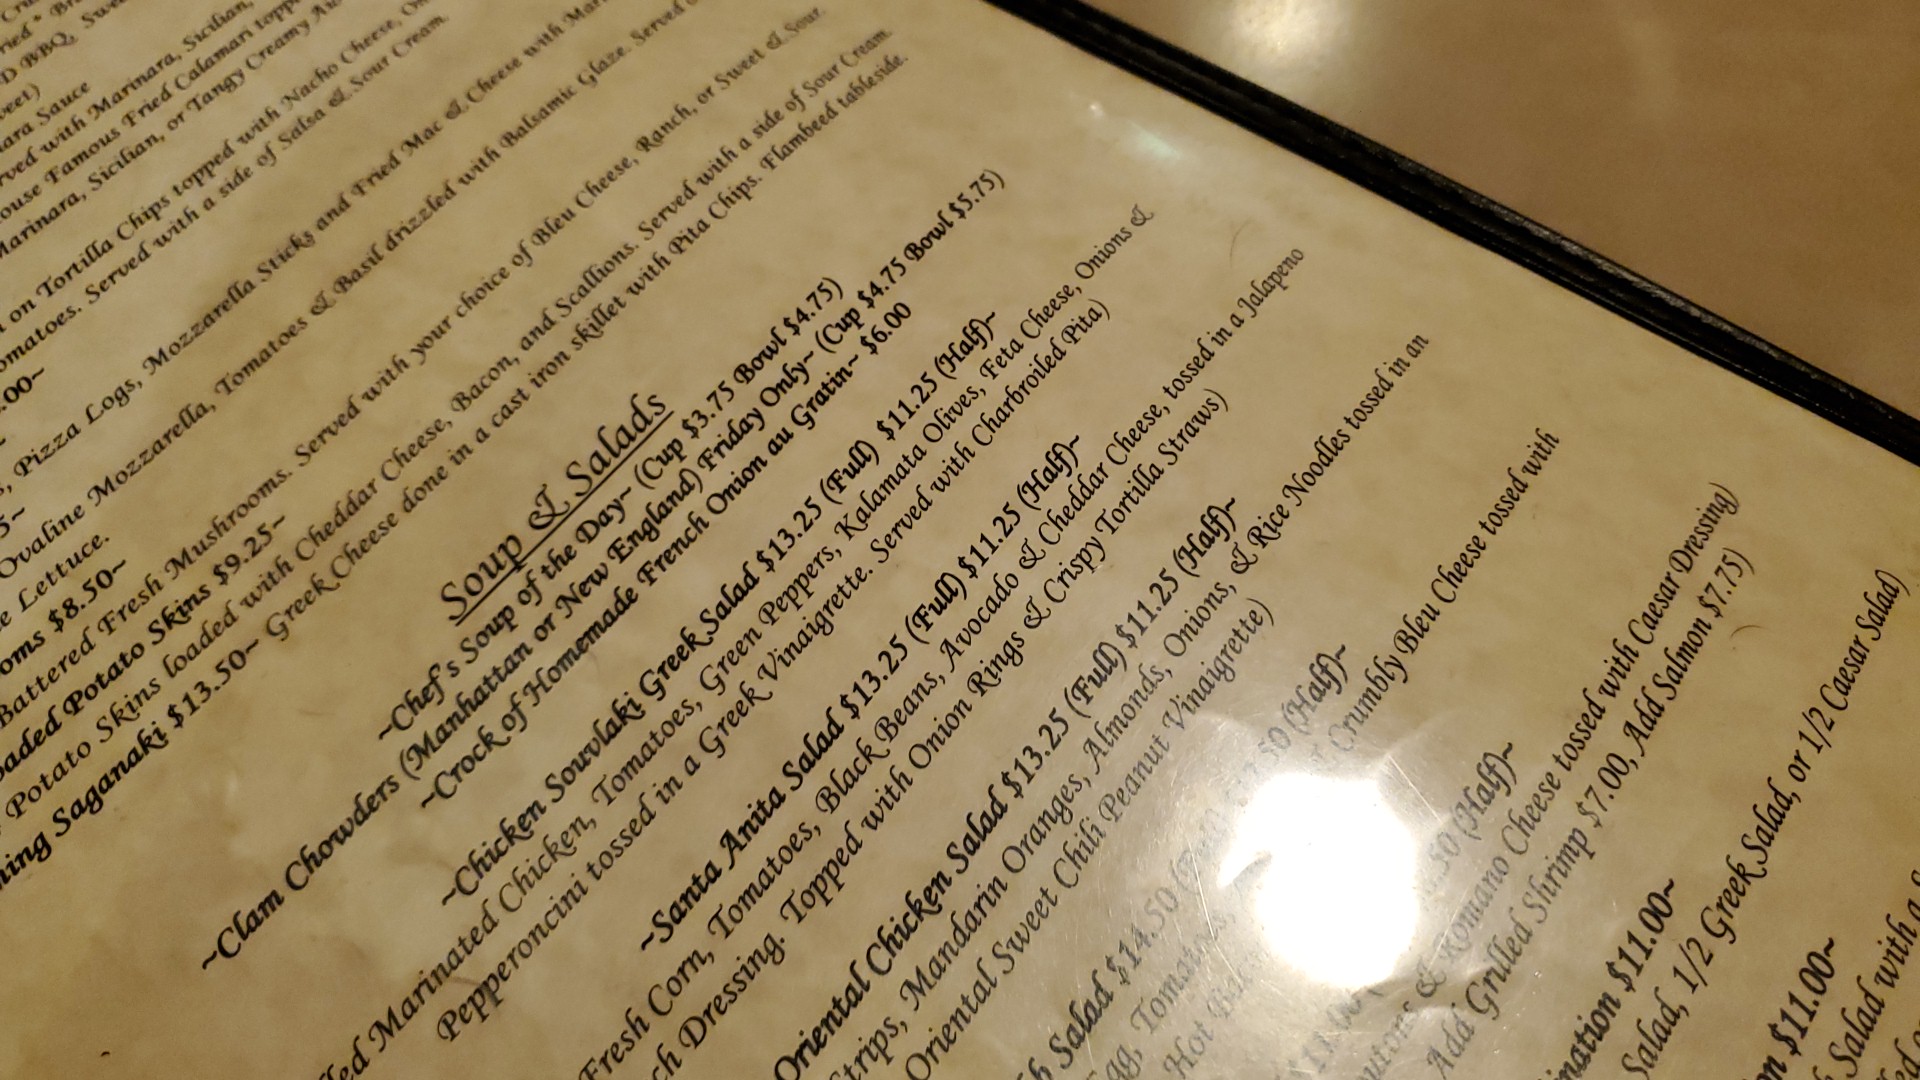 BBQ,
Marinara, Sicilian,
Sauce
served with Marinara, Sicilian,
Famous Fried Calamari
Marinara, Sicilian, or Tangy Creamy
on Tortilla Chips topped with Nacho Cheese,
Served with a side of Salsa & Sour Cream.
.00~
Pizza Logs, Mozzarella Sticks and Fried Mac & Cheese with
Ovaline Mozzarella, Tomatoes & Basil drizzled with Balsamic Glaze. Served
Lettuce.
$8.50~
Battered Fresh Mushrooms. Served with your choice of Bleu Cheese, Ranch, or Sweet & Sour.
Potato Skins $9.25~
Potato Skins loaded with Cheddar Cheese, Bacon, and Scallions. Served with a side of Sour Cream.
Saganaki $13.50~ Greek Cheese done in a cast iron skillet with Pita Chips. Flambeed tableside.
Soup & Salads
~Chef's Soup of the Day~ (Cup $3.75 Bowl $4.75)
~Clam Chowders (Manhattan or New England) Friday Only~ (Cup $4.75 Bowl $5.75)
~Crock of Homemade French Onion au Gratin~ $6.00
~Chicken Souvlaki Greek Salad $13.25 (Full) $11.25 (Half)~
Marinated Chicken, Tomatoes, Green Peppers, Kalamata Olives, Feta Cheese, Onions &
Pepperoncini tossed in a Greek Vinaigrette. Served with Charbroiled Pita)
~Santa Anita Salad $13.25 (Full) $11.25 (Half)~
Fresh Corn, Tomatoes, Black Beans, Avocado & Cheddar Cheese, tossed in a Jalapeno
Dressing. Topped with Onion Rings & Crispy Tortilla Straws)
Oriental Chicken Salad $13.25 (Full) $11.25 (Half)~
Strips, Mandarin Oranges, Almonds, Onions, & Rice Noodles tossed in an
Oriental Sweet Chili Peanut Vinaigrette)
Salad $14.50 (Half)~
Crumbly Bleu Cheese tossed with
Hot
(Half)~
& Romano Cheese tossed with Caesar Dressing)
Add Grilled Shrimp $7.00, Add Salmon $7.75)
$11.00~
Salad, 1/2 Greek Salad, or 1/2 Caesar Salad)
$11.00~
Salad with a